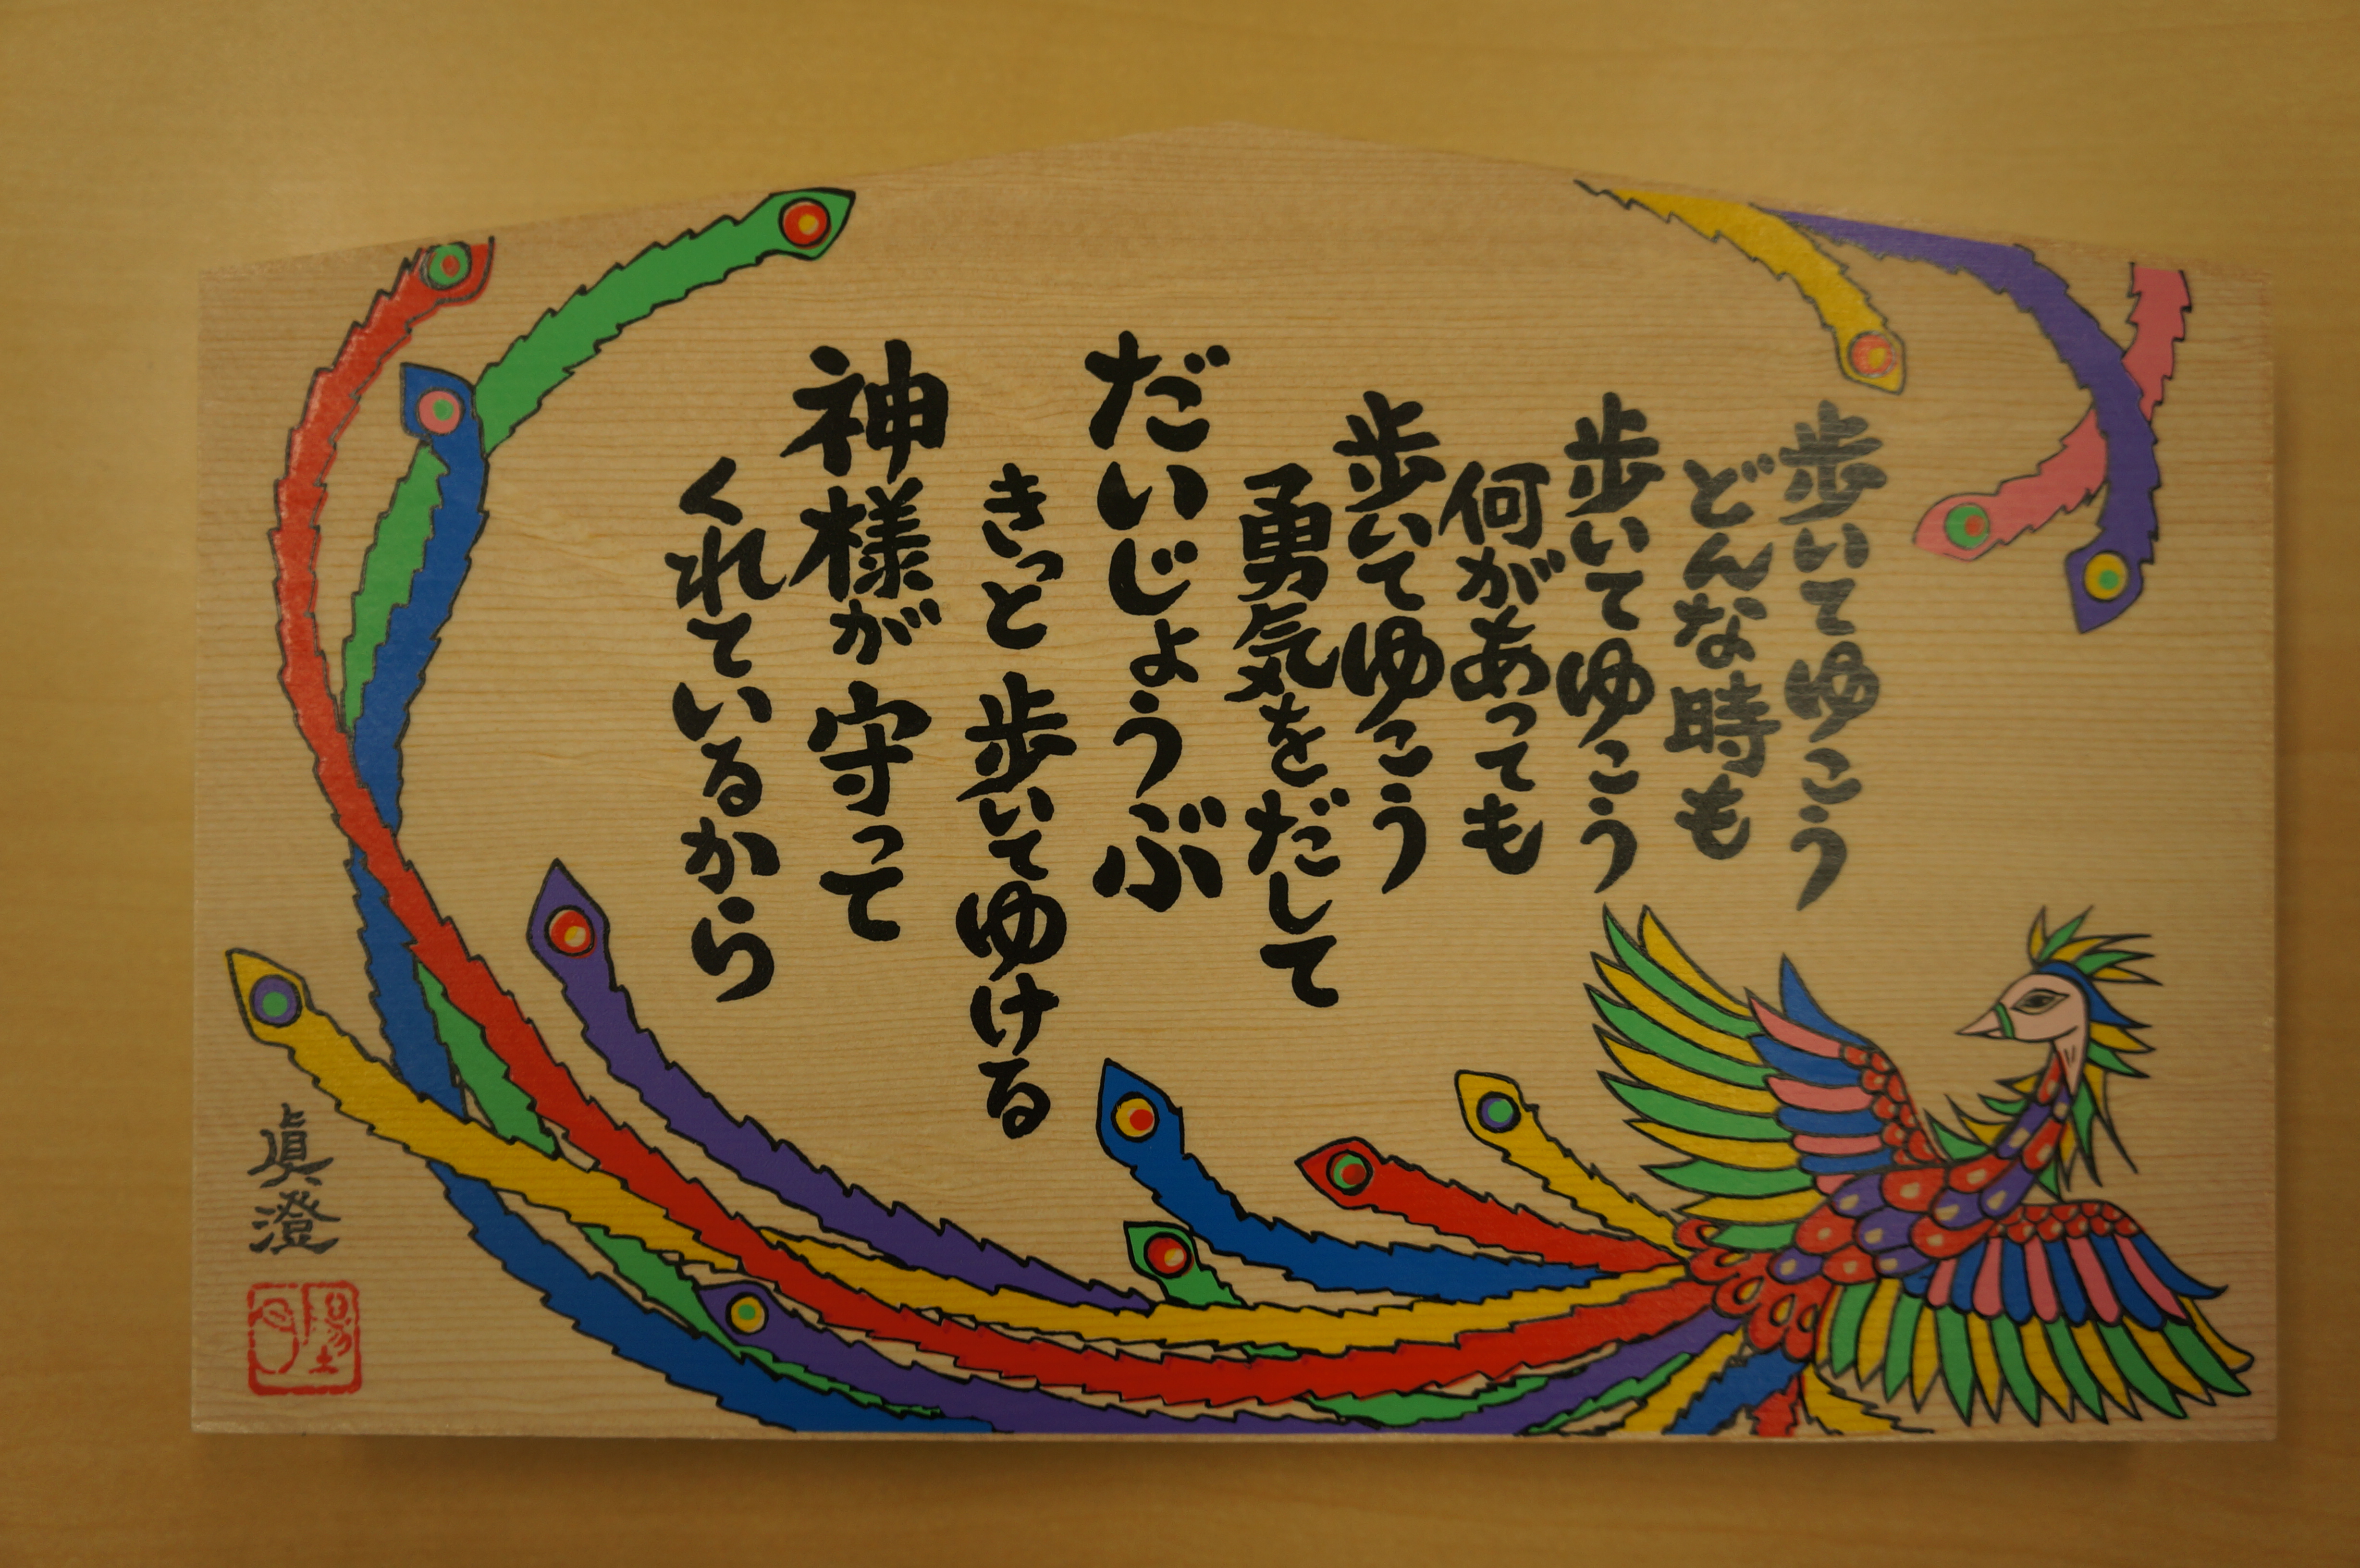 歩いてゆこう
どんな時も
歩いてゆこう
何があっても
歩いてゆこう
勇気をだして
だいじょうぶ
きっと歩いてゆける
神様が守って
くれているから
眞澄